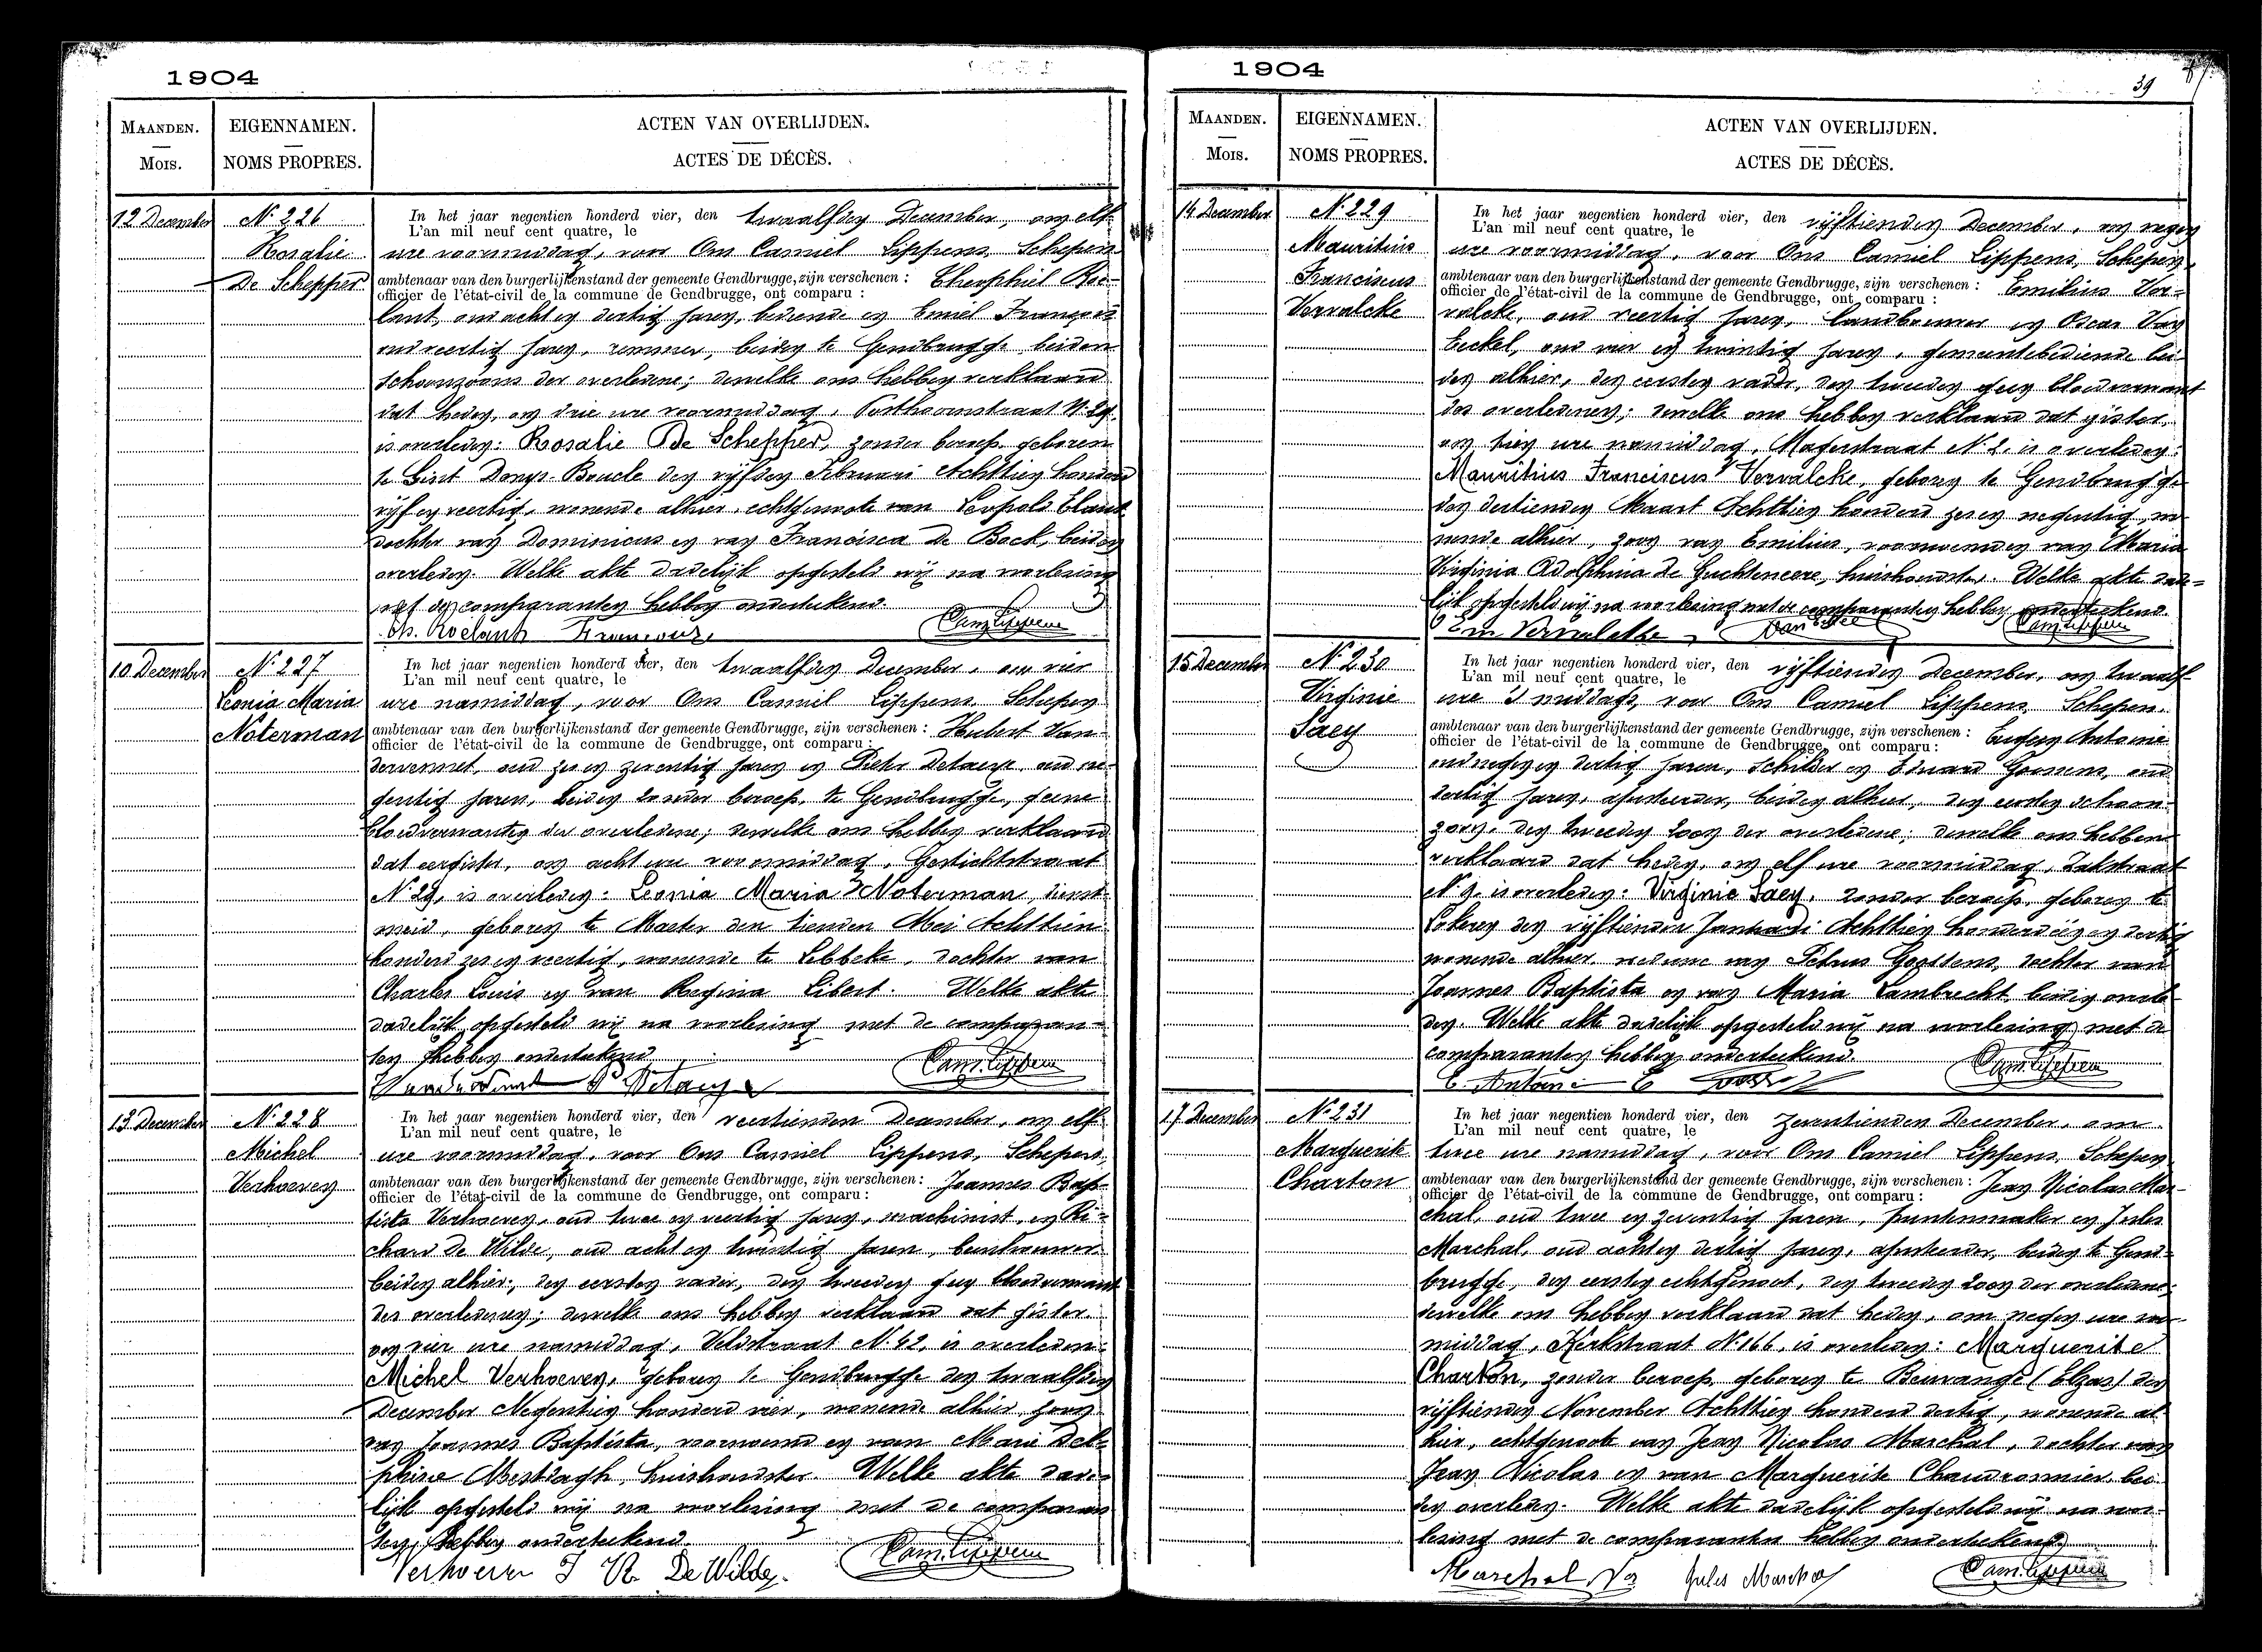 1904
MAANDEN.
Mois.
EIGENNAMEN.
NOMS PROPRES.
ACTEN VAN OVERLIJDEN.
ACTES DE DÉCÈS.
12 December
N° 226
Rosalie
De Schepper
In het jaar negentien honderd vier, den twaalfden December, om elf
L'an mil neuf cent quatre, le
ure voormiddag, voor Ons Camiel Lippens, Schepen
ambtenaar van den burgerlijkenstand der gemeente Gendbrugge, zijn verschenen : Theophiel Roe-
officier de l'état-civil de la commune de Gendbrugge, ont comparu :
lant, oud acht en dertig jaren, bediende en Emiel François
oud veertig jaren, beiden te Gendbrugge, beiden
schoonzoons der overledene; dewelke ons hebben verklaard
dat heden, om drie ure voormiddag, Posthoornstraat N. 29,
is overleden: Rosalie De Schepper, zonder beroep, geboren
te Sint Denys-Boucle den vijfden Februari Achttien honderd
vijf en veertig, wonende alhier, echtgenoote van Leopold
dochter van Dominicus en van Francisca De Bock, beiden
overleden. Welke akte dadelijk opgesteld wij na voorlezing
met de comparanten hebben onderteekend.
Th. Roelant Francois Cam. Lippens
10 December
N° 227
Leonia Maria
Noterman
In het jaar negentien honderd vier, den twaalfden December, om vier
L'an mil neuf cent quatre, le
ure namiddag, voor Ons Camiel Lippens, Schepen
ambtenaar van den burgerlijkenstand der gemeente Gendbrugge, zijn verschenen : Hubert Van-
officier de l'état-civil de la commune de Gendbrugge, ont comparu :
dervennet, oud zes en zeventig jaren en Pieter Detaeye, oud ne-
gentig jaren, beiden zonder beroep, te Gendbrugge, geene
bloedverwanten der overledene; dewelke ons hebben verklaard
dat eergister, om acht ure voormiddag, Gestichtstraat
N° 29, is overleden: Leonia Maria Noterman, dienst-
meid, geboren te Maeter den tienden Mei Achttien
honderd zes en veertig, wonende te Lebbeke, dochter van
Charles Louis en van Regina Libert. Welke akte
dadelijk opgesteld wij na voorlezing met de comparan-
ten hebben onderteekend.
P. Detaeye Cam. Lippens
13 December
N° 228
Michel
Verhoeven
In het jaar negentien honderd vier, den veertienden December, om elf
L'an mil neuf cent quatre, le
ure voormiddag, voor Ons Camiel Lippens, Schepen,
ambtenaar van den burgerlijkenstand der gemeente Gendbrugge, zijn verschenen : Joannes Bap-
officier de l'état-civil de la commune de Gendbrugge, ont comparu :
tista Verhoeven, oud twee en veertig jaren, machinist, en Ri-
chard De Wilde, oud acht en twintig jaren, beenhouwer
beiden alhier, den eersten vader, den tweeden geen bloedverwant
des overledenen; dewelke ons hebben verklaard dat gister
om vier ure namiddag, Veldstraat N° 42, is overleden:
Michel Verhoeven, geboren te Gendbrugge den twaalfden
December Negentien honderd vier, wonende alhier, zoon
van Joannes Baptista, voornoemd en van Marie Del-
phine Mestdagh, huishoudster. Welke akte dade-
lijk opgesteld wij na voorlezing met de comparan-
ten hebben onderteekend.
Verhoeven J R. De Wilde. Cam. Lippens
1904
39
MAANDEN.
Mois.
EIGENNAMEN.
NOMS PROPRES.
ACTEN VAN OVERLIJDEN.
ACTES DE DÉCÈS.
14 December
N° 229
Mauritius
Franciscus
Vervalcke
In het jaar negentien honderd vier, den vijftienden December, om negen
L'an mil neuf cent quatre, le
ure voormiddag, voor Ons Camiel Lippens, Schepen,
ambtenaar van den burgerlijkenstand der gemeente Gendbrugge, zijn verschenen : Emilius Ver-
officier de l'état-civil de la commune de Gendbrugge, ont comparu :
valcke, oud veertig jaren, landbouwer en Oscar Van
Eeckel, oud vier en twintig jaren, gemeentebediende bei-
den alhier, den eersten vader, den tweeden geen bloedverwant
des overledenen; dewelke ons hebben verklaard dat gister,
om tien ure namiddag, Magerstraat N° 2, is overleden:
Mauritius Franciscus Vervalcke, geboren te Gendbrugge
den dertienden Maart Achttien honderd zes en negentig, wo-
nende alhier, zoon van Emilius, voornoemd en van Maria
Virginia Adolphina De Guchteneere, huishoudster. Welke akte dade-
lijk opgesteld wij na voorlezing met de comparanten hebben onderteekend.
Em Vervalcke Cam. Lippens
15 December
N° 230
Virginie
Saey
In het jaar negentien honderd vier, den vijftienden December, om twaalf
L'an mil neuf cent quatre, le
ure 's middags, voor Ons Camiel Lippens, Schepen.
ambtenaar van den burgerlijkenstand der gemeente Gendbrugge, zijn verschenen : Eugeen Antoine
officier de l'état-civil de la commune de Gendbrugge, ont comparu :
oud negen en dertig jaren, schilder en Eduard Goossens, oud
dertig jaren, ajusteerder, beiden alhier, den eersten schoon-
zoon, den tweeden zoon der overledene; dewelke ons hebben
verklaard dat heden, om elf ure voormiddag, Zakstraat
N° 9, is overleden: Virginie Saey, zonder beroep, geboren te
Lokeren den vijftienden Januari Achttien honderd één en dertig
wonende alhier, weduwe van Petrus Goossens, dochter van
Joannes Baptista en van Maria Lambrecht, beiden overle-
den. Welke akte dadelijk opgesteld wij na voorlezing met de
comparanten hebben onderteekend.
E. Antoine E Goossens Cam. Lippens
17 December
N° 231
Marguerite
Charton
In het jaar negentien honderd vier, den zeventienden December, om
L'an mil neuf cent quatre, le
twee ure namiddag, voor Ons Camiel Lippens, Schepen
ambtenaar van den burgerlijkenstand der gemeente Gendbrugge, zijn verschenen : Jean Nicolas Mar-
officier de l'état-civil de la commune de Gendbrugge, ont comparu :
chal, oud twee en zeventig jaren, puntenmaker en Jules
Marchal, oud acht en dertig jaren, ajusteerder, beiden te Gend-
brugge, den eersten echtgenoot, den tweeden zoon der overledene;
dewelke ons hebben verklaard dat heden, om negen ure voor-
middag, Kerkstraat N° 166, is overleden: Marguerite
Charton, zonder beroep, geboren te Beuvange (Elzas) den
vijftienden November Achttien honderd dertig, wonende al-
hier, echtgenoote van Jean Nicolas Marchal, dochter van
Jean Nicolas en van Marguerite Chaudronnier, bei-
den overleden. Welke akte dadelijk opgesteld wij na voor-
lezing met de comparanten hebben onderteekend.
Marchal Jules Marchal Cam. Lippens